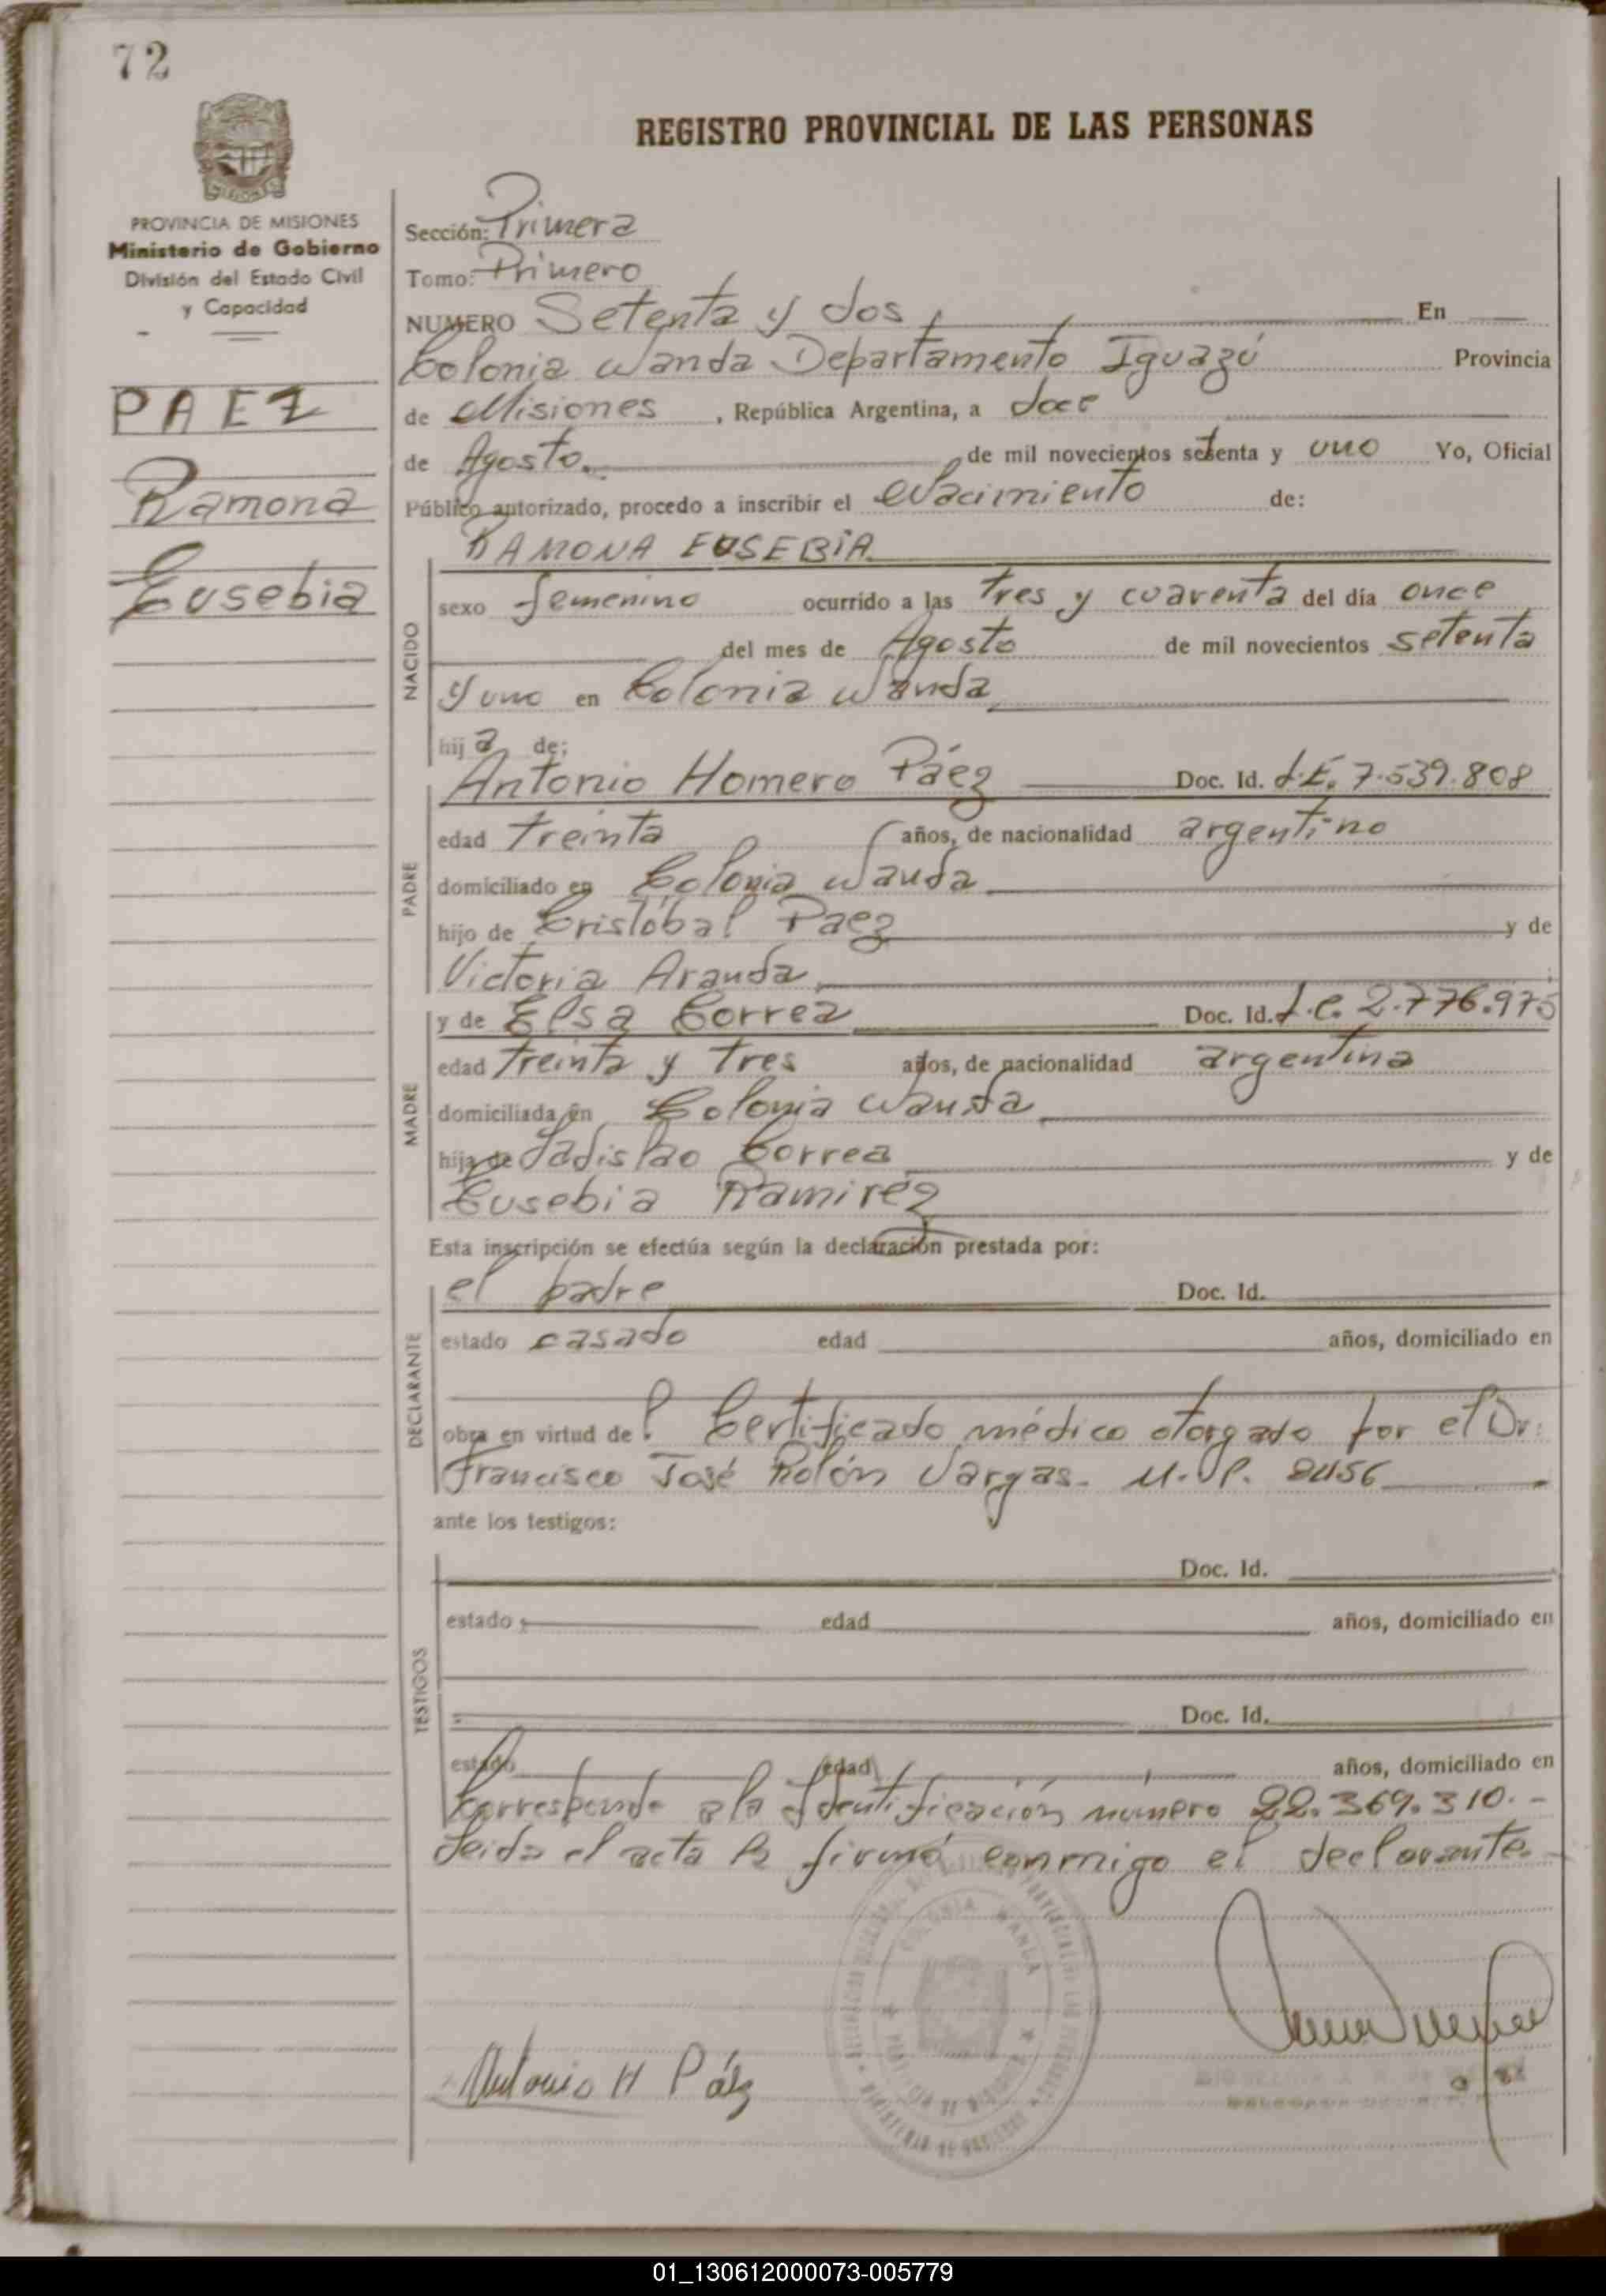 72
REGISTRO PROVINCIAL DE LAS PERSONAS
MISIONES
PROVINCIA DE MISIONES
Ministerio de Gobierno
División del Estado Civil
y Capacidad
PAEZ
Ramona
Eusebia
Sección: Primera
Tomo: Primero
NUMERO Setenta y dos En
Colonia Wanda Departamento Iguazú Provincia
de Misiones, República Argentina, a doce
de Agosto. de mil novecientos setenta y uno Yo, Oficial
Público autorizado, procedo a inscribir el Nacimiento de:
RAMONA EUSEBIA
NACIDO
sexo femenino ocurrido a las tres y cuarenta del día once
del mes de Agosto de mil novecientos setenta
y uno en Colonia Wanda
hija de:
PADRE
Antonio Homero Páez Doc. Id. L.E. 7.539.808
edad treinta años, de nacionalidad argentino
domiciliado en Colonia Wanda
hijo de Cristóbal Paez y de
Victoria Aranda
MADRE
y de Elsa Correa Doc. Id. L.C. 2.776.975
edad treinta y tres años, de nacionalidad argentina
domiciliada en Colonia Wanda
hija de Ladislao Correa y de
Eusebia Ramiréz
Esta inscripción se efectúa según la declaración prestada por:
DECLARANTE
el padre Doc. Id.
estado casado edad años, domiciliado en
obra en virtud de l Certificado médico otorgado por el Dr:
Francisco José Rolón Vargas. M.P. 2456
ante los testigos:
TESTIGOS
Doc. Id.
estado edad años, domiciliado en
Doc. Id.
estado edad años, domiciliado en
Corresponde a la Identificación numero 22.369.310.-
Leida el acta la firmó conmigo el declarante.
COLONIA WANDA
Antonio H Páez
01_130612000073-005779